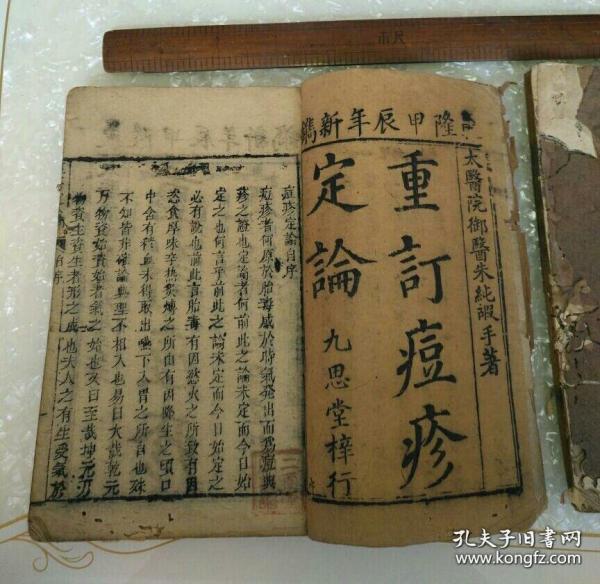 市尺
隆甲辰年新鐫
太醫院御醫朱純嘏手著
重訂痘疹
定論
九思堂梓行
痘疹定論自序
痘疹者何原於胎毒感於時氣發出而爲痘與
疹之證也定論者何前此之論未定而今日始
定之也何言乎前此之論未定而今日始定之
必有說也前此言胎毒有因慾火之所致有因
恣食厚味辛熱
之所由有因降生之頃口
中含有穢血未得取出嚥下入胃之所自也殊
不知皆非確論與理不相入也易曰大哉乾元
萬物資始資始者氣之始也又曰至哉坤元
物資生資生者形之成也夫人之有生受氣於
自序
孔夫子旧书网
www.kongfz.com